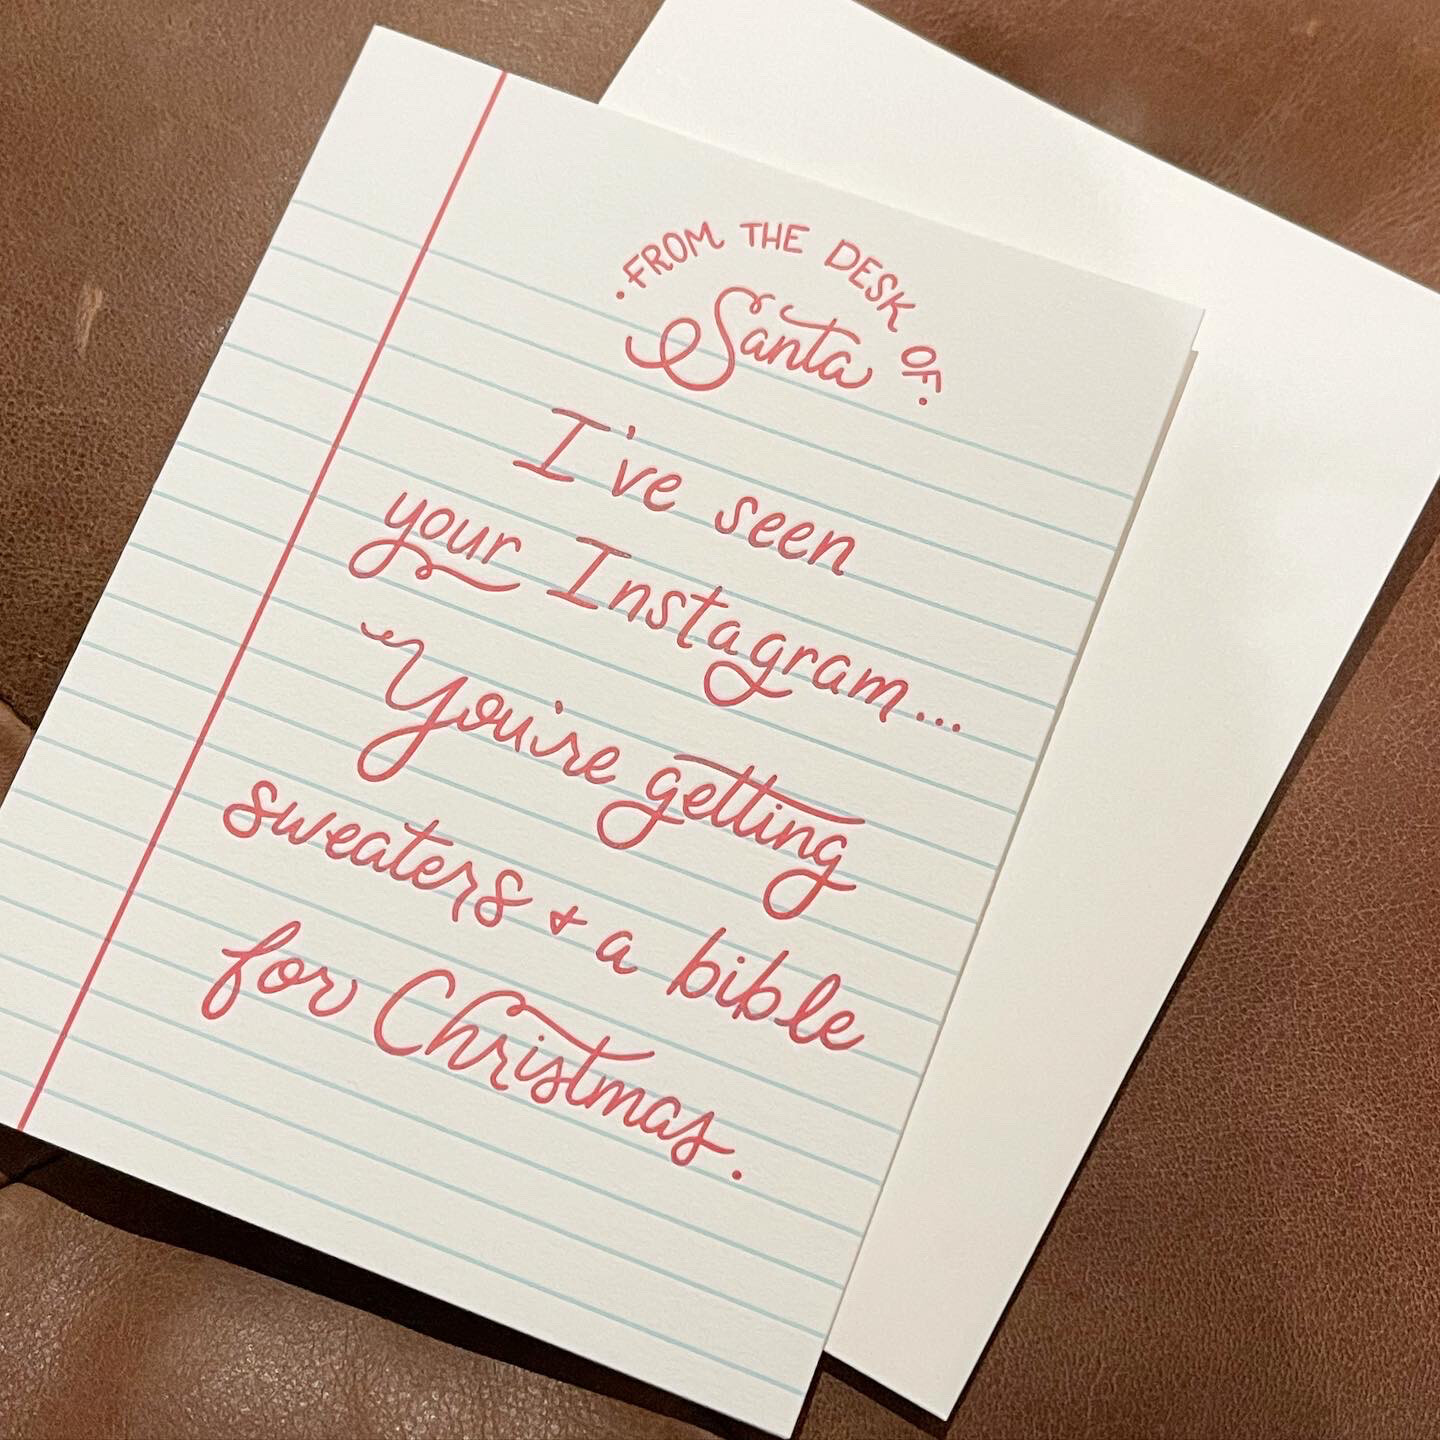 · FROM THE DESK OF ·
Santa
I've seen
your Instagram...
You're getting
sweaters + a bible
for Christmas.